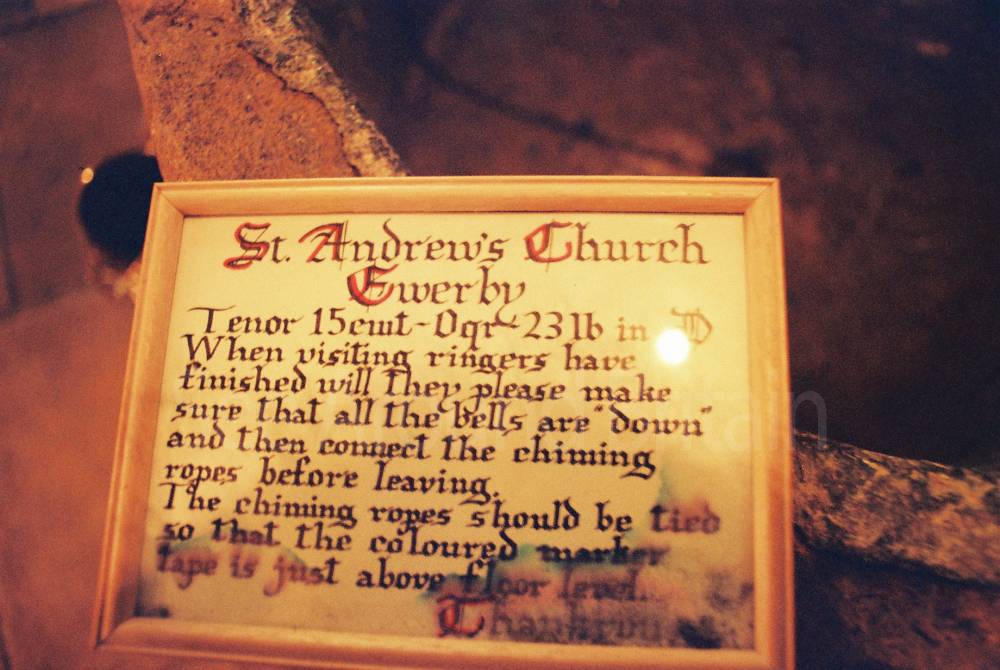 St. Andrew's Church
Ewerby
Tenor 15cwt - 0qr - 23 lb in D
When visiting ringers have
finished will they please make
sure that all the bells are "down"
and then connect the chiming
ropes before leaving.
The chiming ropes should be tied
so that the coloured marker
tape is just above floor level.